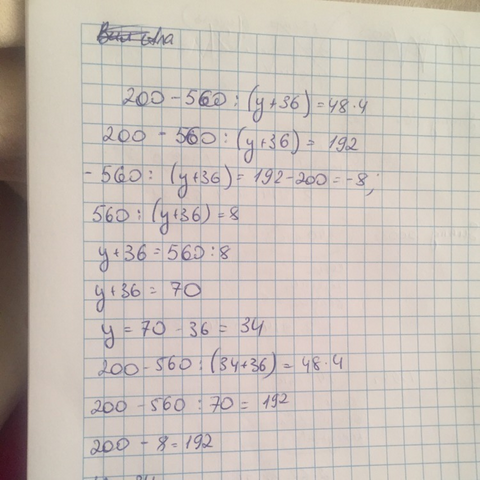 200 - 560 : (y+36) = 48·4
200 - 560 : (y+36) = 192
- 560 : (y+36) = 192-200 = -8;
560 : (y+36) = 8
y+36 = 560:8
y+36 = 70
y = 70 - 36 = 34
200-560 : (34+36) = 48·4
200 - 560 : 70 = 192
200 - 8 = 192